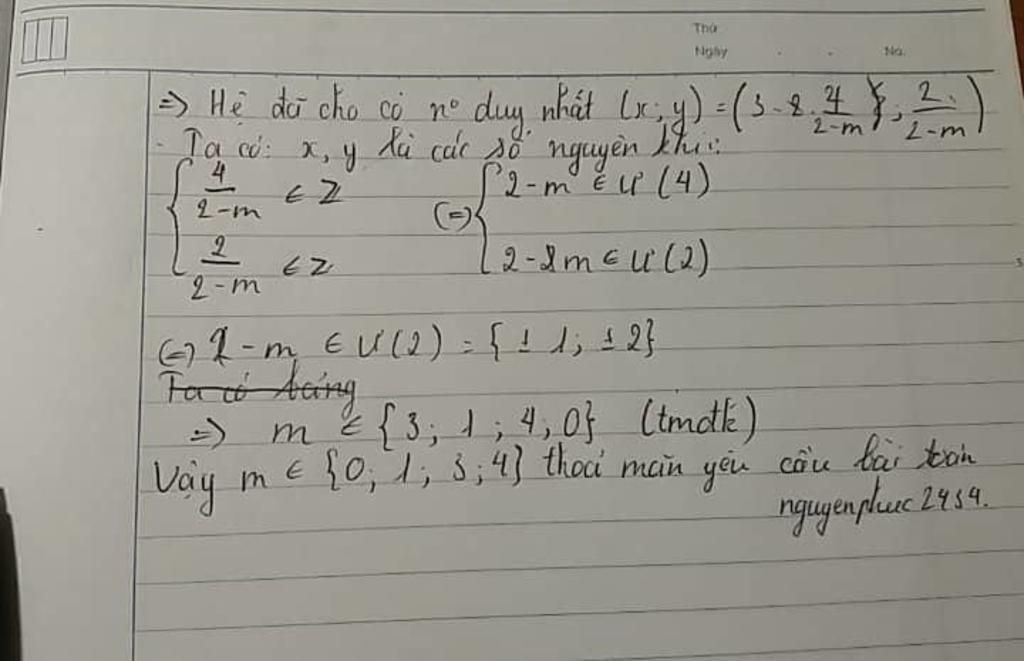 Thứ
Ngày . . No.
=> Hệ đã cho có n° duy nhất (x; y) = (3 - 2. 4/(2-m) ; 2/(2-m))
- Ta có: x, y là các số nguyên khi:
{ 4/(2-m) ∈ Z (=) { 2-m ∈ Ư(4)
{ 2/(2-m) ∈ Z { 2-2m ∈ Ư(2)
(=) 2-m ∈ Ư(2) = {±1; ±2}
Ta có bảng
=> m ∈ {3; 1; 4; 0} (tmđk)
Vậy m ∈ {0; 1; 3; 4} thoả mãn yêu cầu bài toán
nguyenphuc2454.